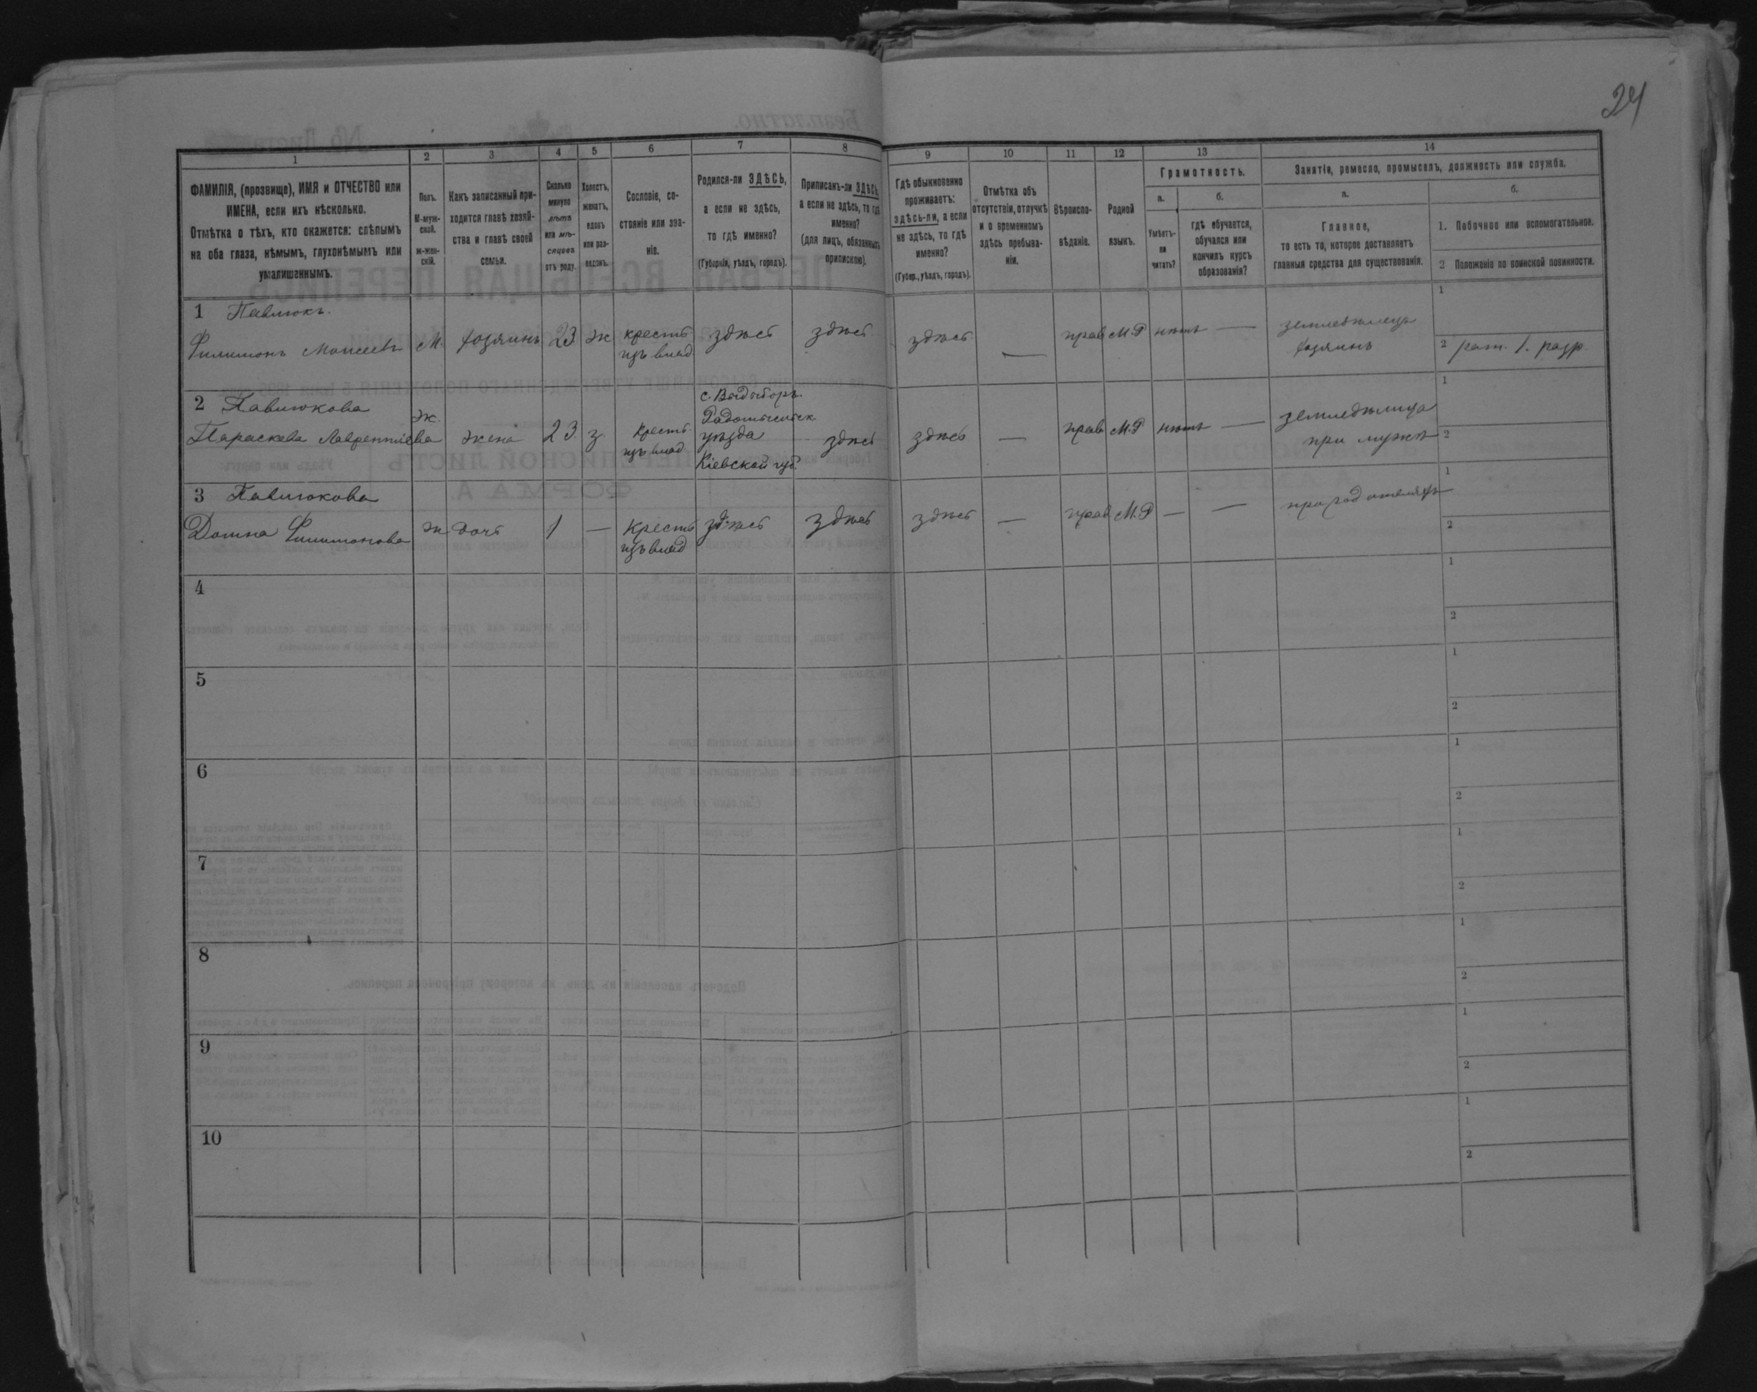 24
1
2
3
4
5
6
7
8
9
10
11
12
13
14
ФАМИЛІЯ, (прозвище), ИМЯ и ОТЧЕСТВО или
ИМЕНА, если ихъ нѣсколько.
Отмѣтка о тѣхъ, кто окажется: слѣпымъ
на оба глаза, нѣмымъ, глухонѣмымъ или
умалишеннымъ.
Полъ.
М-муж-
ской.
ж-жен-
скій.
Какъ записанный при-
ходится главѣ хозяй-
ства и главѣ своей
семьи.
Сколько
минуло
лѣтъ
или мѣ-
сяцевъ
отъ роду.
Холостъ,
женатъ,
вдовъ
или раз-
веденъ.
Сословіе, со-
стояніе или зва-
ніе.
Родился-ли ЗДѢСЬ,
а если не здѣсь,
то гдѣ именно?
(Губернія, уѣздъ, городъ).
Приписанъ-ли ЗДѢСЬ,
а если не здѣсь, то гдѣ
именно?
(для лицъ, обязанныхъ
припискою).
Гдѣ обыкновенно
проживаетъ:
здѣсь-ли, а если
не здѣсь, то гдѣ
именно?
(Губер., уѣздъ, городъ).
Отмѣтка объ
отсутствіи, отлучкѣ
и о временномъ
здѣсь пребыва-
ніи.
Вѣроиспо-
вѣданіе.
Родной
языкъ.
Грамотность.
а.
б.
Умѣетъ-
ли
читать?
гдѣ обучается,
обучался или
кончилъ курсъ
образованія?
Занятіе, ремесло, промыселъ, должность или служба.
а.
б.
Главное,
то есть то, которое доставляетъ
главныя средства для существованія.
1. Побочное или вспомогательное.
2 Положеніе по воинской повинности.
1 Павлюкъ.
Филимонъ Моисеевъ М. хозяинъ 23 ж крестъ
изъ влад здѣсь здѣсь здѣсь — прав М.Р нѣтъ — земледѣлецъ
хозяинъ
1
2 рат. 1. разр.
2 Павлюкова
Параскева Лаврентіева ж. жена 23 з крестъ
изъ влад
с. Выдыборъ
Радомысльск
уѣзда
Кіевской губ
здѣсь здѣсь — прав М.Р нѣтъ — земледѣлица
при мужѣ
1
2
3 Павлюкова
Домна Филимонова ж дочь 1 — крестъ
изъ влад здѣсь здѣсь здѣсь — прав М.Р — —
1
2
4
1
2
5
1
2
6
1
2
7
1
2
8
1
2
9
1
2
10
1
2